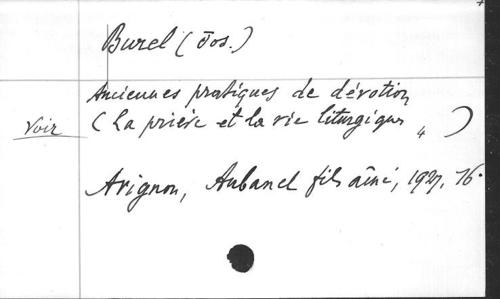 Burel (Jos.)
Anciennes pratiques de dévotion
Voir
(La prière et la vie liturgique 4)
Avignon, Aubanel fils aîné, 1927, 16°